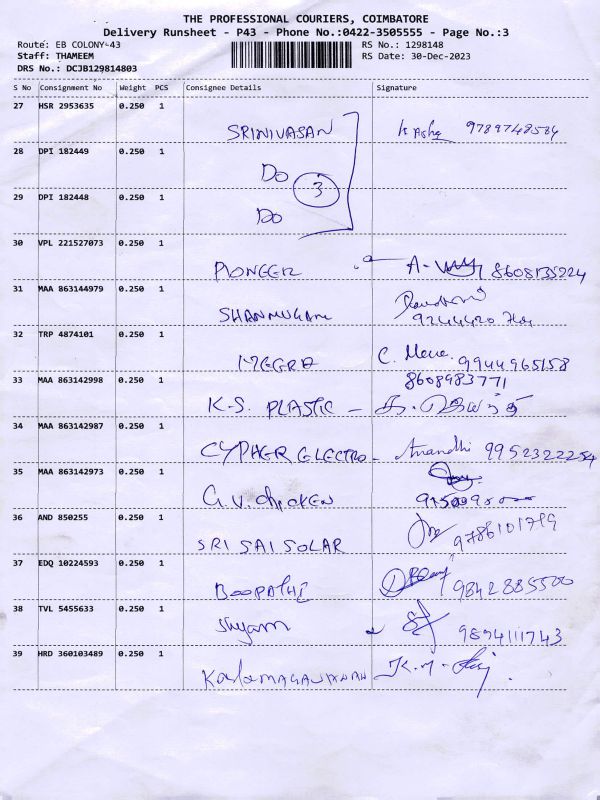 THE PROFESSIONAL COURIERS, COIMBATORE
Delivery Runsheet - P43 - Phone No.:0422-3505555 - Page No.:3
Route: EB COLONY-43 RS No.: 1298148
Staff: THAMEEM RS Date: 30-Dec-2023
DRS No.: DCJB129814803
S No Consignment No Weight PCS Consignee Details Signature
27 HSR 2953635 0.250 1
SRINIVASAN 9789748584
28 DPI 182449 0.250 1
Do
3
29 DPI 182448 0.250 1
Do
30 VPL 221527073 0.250 1
PIONEER A- 8608135224
31 MAA 863144979 0.250 1
SHANMUGAM
9244420
32 TRP 4874101 0.250 1
MEERA C. Mera 9944965158
33 MAA 863142998 0.250 1 8608983771
K.S. PLASTIC -
34 MAA 863142987 0.250 1
CYPHER ELECTRO - Anandhi 9952322254
35 MAA 863142973 0.250 1
G.V. chicken
36 AND 850255 0.250 1
SRI SAI SOLAR 9786101719
37 EDQ 10224593 0.250 1
BOOPATHI 9842885500
38 TVL 5455633 0.250 1
Shyam 9894111743
39 HRD 360103489 0.250 1
K.M.